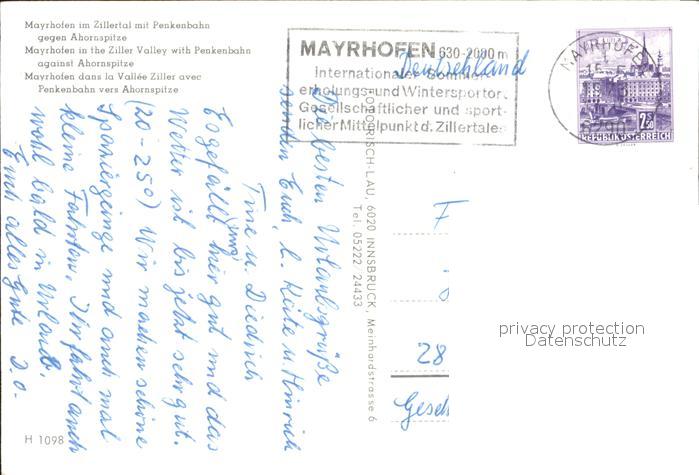 Mayrhofen im Zillertal mit Penkenbahn
gegen Ahornspitze
Mayrhofen in the Ziller Valley with Penkenbahn
against Ahornspitze
Mayrhofen dans la Vallée Ziller avec
Penkenbahn vers Ahornspitze
MAYRHOFEN 630-2000 m
Internationaler Sommer-
erholungs- und Wintersportort
Gesellschaftlicher und sport-
licher Mittelpunkt d. Zillertales
MAYRHOFEN
6290
2.S50
REPUBLIK ÖSTERREICH
Deutschland
Die besten Urlaubsgrüße
senden Euch, l. Käte u. Hinrich
Tine u. Diedrich
Es gefällt uns hier gut und das
Wetter ist bis jetzt sehr gut.
(20-25°) Wir machen schöne
Spaziergänge und auch mal
kleine Fahrten. Ihr fahrt auch
wohl bald in Urlaub.
Euch alles Gute D.O.
RISCH-LAU, 6020 INNSBRUCK, Meinhardstrasse 6
Tel. 05222/24433
F
28
Gesch
privacy protection
Datenschutz
H 1098